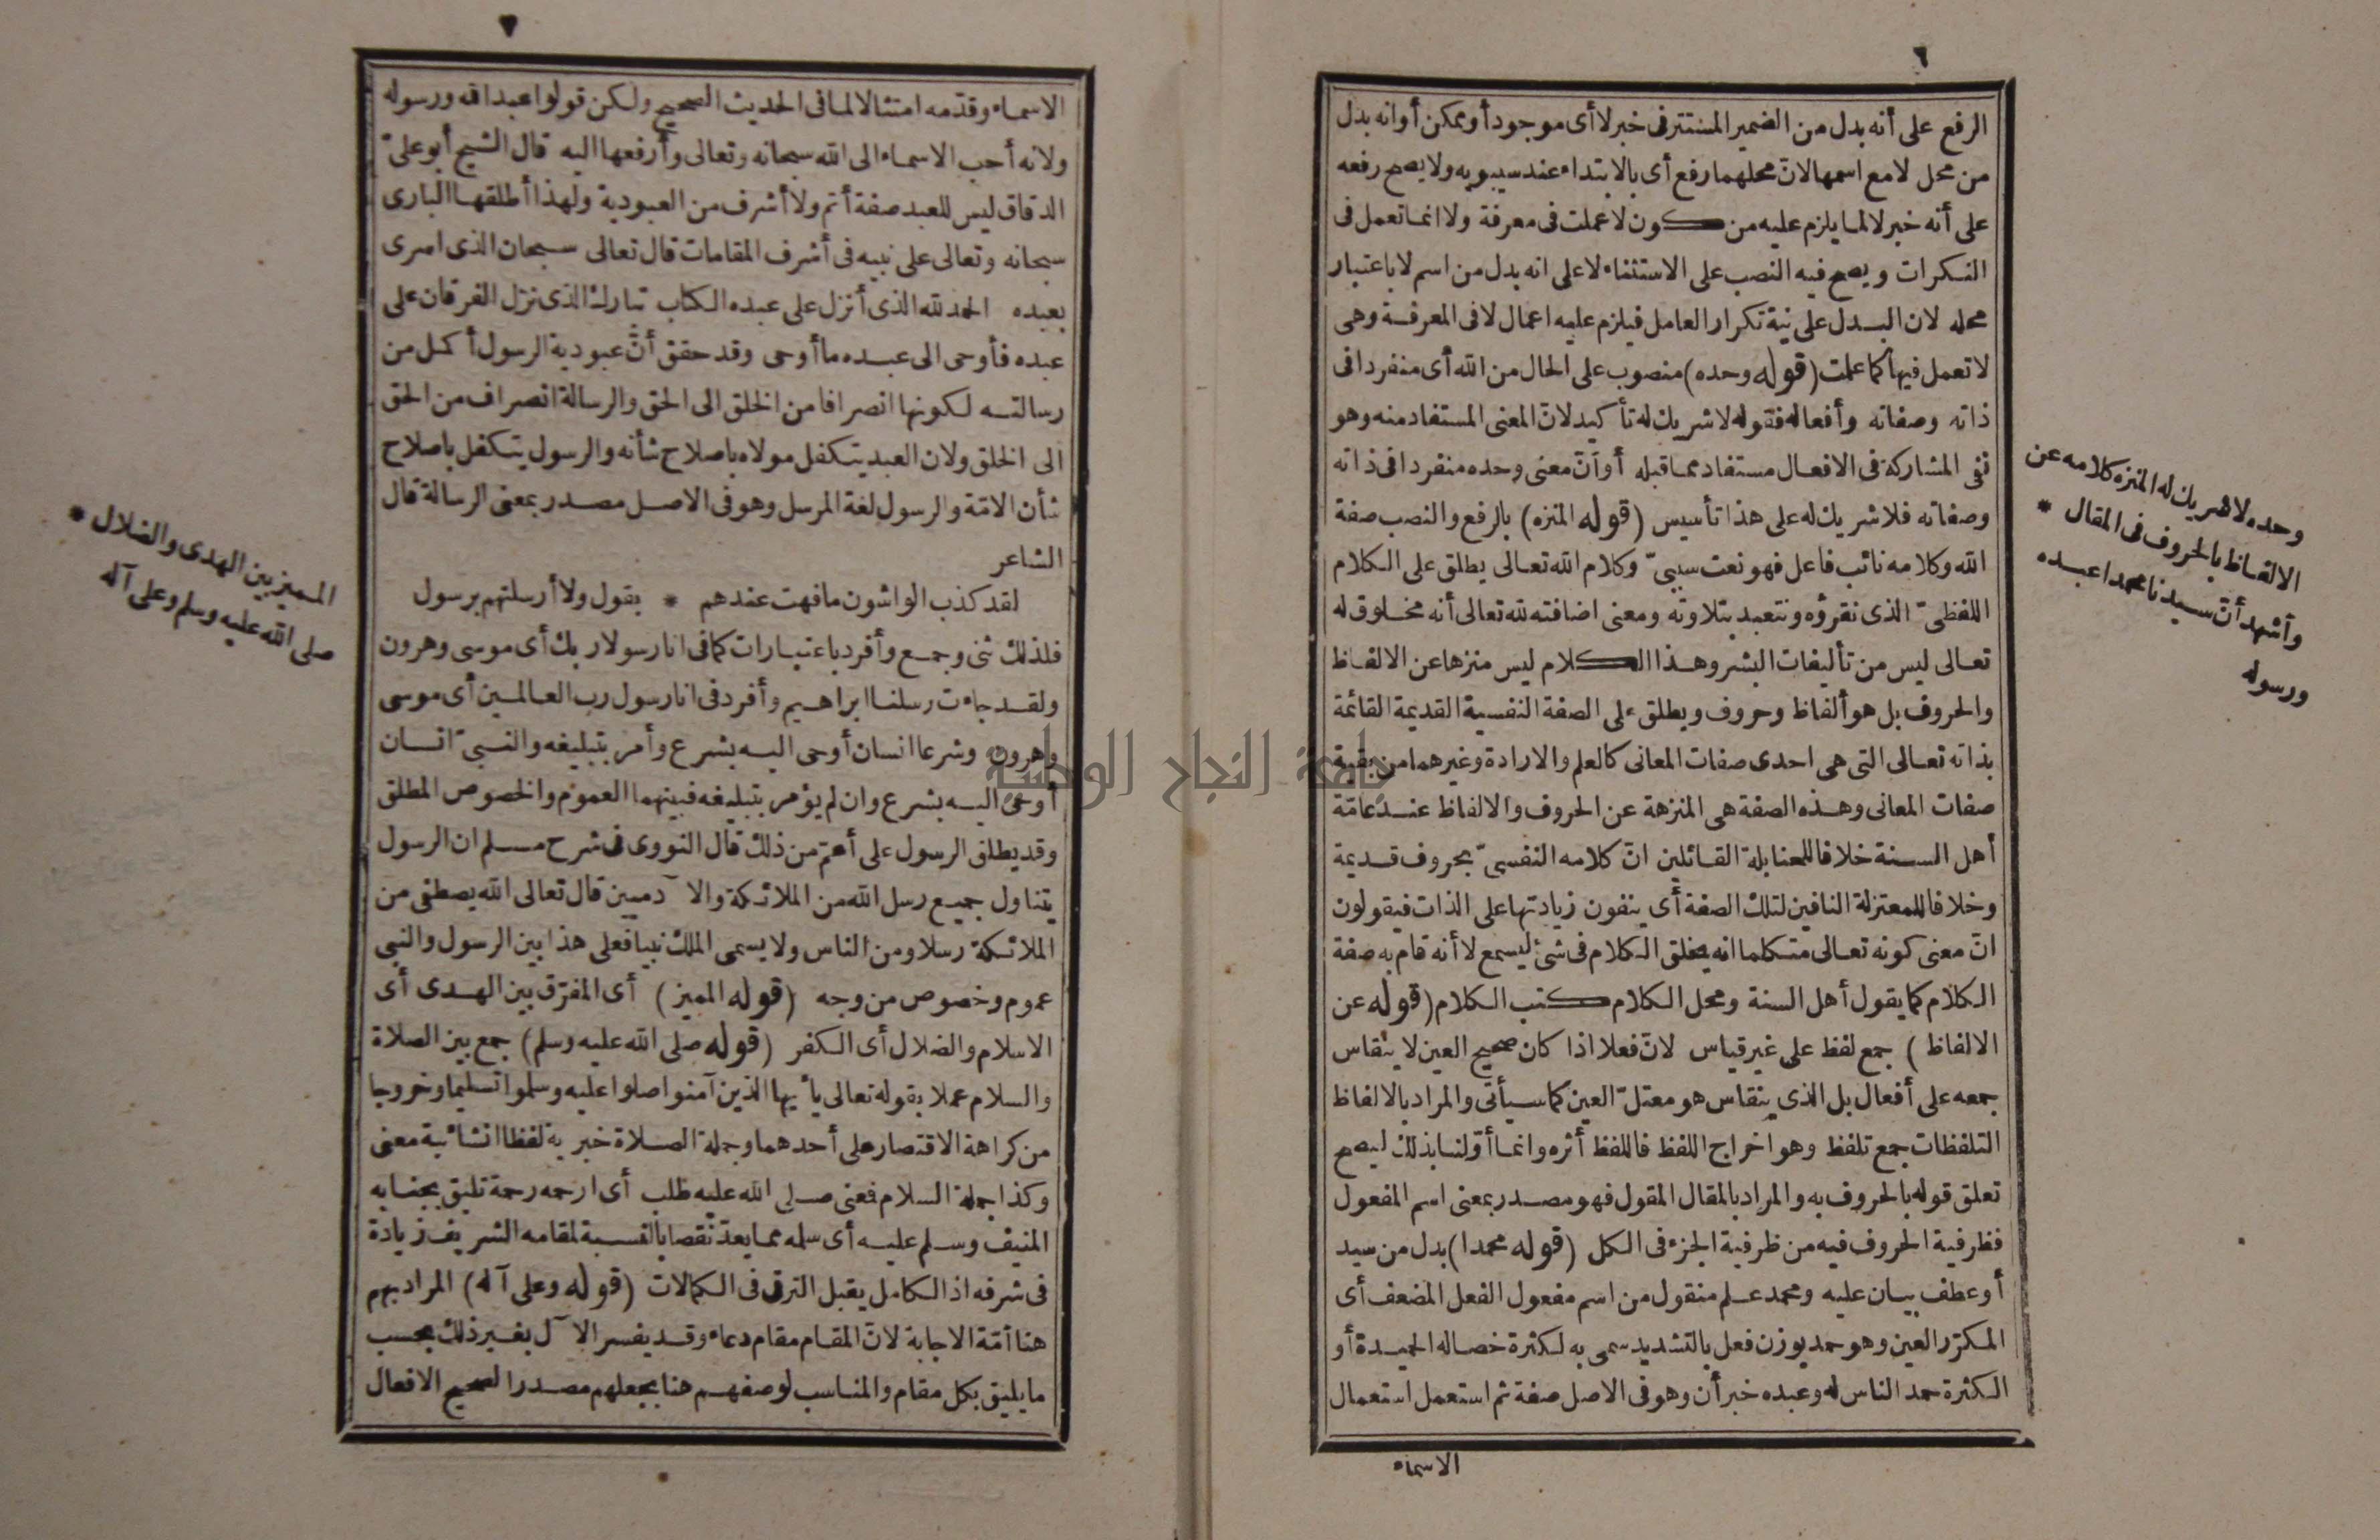 ٦
الرفع على أنه بدل من الضمير المستتر فى خبر لا أى موجود أو ممكن أو انه بدل
من محل لا مع اسمها لانّ محلهما رفع أى بالابتداء عند سيبويه ولا يصح رفعه
على أنه خبر لا لما يلزم عليه من كون لا عملت فى معرفة ولا انما تعمل فى
النكرات ويصح فيه النصب على الاستثناء لا على انه بدل من اسم لا باعتبار
محله لان البدل على نية تكرار العامل فيلزم عليه اعمال لا فى المعرفة وهى
لا تعمل فيها كما علمت (قوله وحده) منصوب على الحال من الله أى منفردا فى
ذاته وصفاته وأفعاله فقوله لا شريك له تأكيد لانّ المعنى المستفاد منه وهو
نفى المشاركة فى الافعال مستفاد مما قبله أو أنّ معنى وحده منفردا فى ذاته
وصفاته فلا شريك له على هذا تأسيس (قوله المنزه) بالرفع والنصب صفة
الله وكلامه نائب فاعل فهو نعت سببىّ وكلام الله تعالى يطلق على الكلام
اللفظىّ الذى نقرؤه ونتعبد بتلاوته ومعنى اضافته لله تعالى أنه مخلوق له
تعالى ليس من تأليفات البشر وهذا الكلام ليس منزها عن الالفاظ
والحروف بل هو ألفاظ وحروف ويطلق على الصفة النفسية القديمة القائمة
بذاته تعالى التى هى احدى صفات المعانى كالعلم والارادة وغيرهما من بقية
صفات المعانى وهذه الصفة هى المنزهة عن الحروف والالفاظ عند عامّة
أهل السنة خلافا للحنابلة القائلين انّ كلامه النفسىّ بحروف قديمة
وخلافا للمعتزلة النافين لتلك الصفة أى ينفون زيادتها على الذات فيقولون
انّ معنى كونه تعالى متكلما انه يخلق الكلام فى شئ ليسمع لا أنه قام به صفة
الكلام كما يقول أهل السنة ومحل الكلام كتب الكلام (قوله عن
الالفاظ) جمع لفظ على غير قياس لانّ فعلا اذا كان صحيح العين لا ينقاس
جمعه على أفعال بل الذى ينقاس هو معتلّ العين كما سيأتى والمراد بالالفاظ
التلفظات جمع تلفظ وهو اخراج اللفظ فاللفظ أثره وانما أوّلنا بذلك ليصح
تعلق قوله بالحروف به والمراد بالمقال المقول فهو مصدر بمعنى اسم المفعول
فظرفية الحروف فيه من ظرفية الجزء فى الكل (قوله محمدا) بدل من سيد
أو عطف بيان عليه ومحمد علم منقول من اسم مفعول الفعل المضعف أى
المكرّر العين وهو حمد بوزن فعل بالتشديد سمى به لكثرة خصاله الحميدة أو
لكثرة حمد الناس له وعبده خبر أن وهو فى الاصل صفة ثم استعمل استعمال
الاسماء
وحده لا شريك له المنزه كلامه عن
الالفاظ بالحروف فى المقال *
وأشهد أنّ سيدنا محمدا عبده
ورسوله
٧
الاسماء وقدّمه امتثالا لما فى الحديث الصحيح ولكن قولوا عبد الله ورسوله
ولانه أحب الاسماء الى الله سبحانه وتعالى وأرفعها اليه قال الشيخ أبو علىّ
الدقاق ليس للعبد صفة أتم ولا أشرف من العبودية ولهذا أطلقها البارى
سبحانه وتعالى على نبيه فى أشرف المقامات قال تعالى سبحان الذى اسرى
بعبده الحمد لله الذى أنزل على عبده الكتاب تبارك الذى نزل الفرقان على
عبده فأوحى الى عبده ما أوحى وقد حقق أنّ عبودية الرسول أكمل من
رسالته لكونها انصرافا من الخلق الى الحق والرسالة انصراف من الحق
الى الخلق ولان العبد يتكفل مولاه باصلاح شأنه والرسول يتكفل باصلاح
شأن الامّة والرسول لغة المرسل وهو فى الاصل مصدر بمعنى الرسالة قال
الشاعر
لقد كذب الواشون ما فهت عندهم * بقول ولا أرسلتهم برسول
فلذلك ثنى وجمع وأفرد باعتبارات كما فى انا رسولا ربك أى موسى وهرون
ولقد جاءت رسلنا ابراهيم وأفرد فى انا رسول رب العالمين أى موسى
وهرون وشرعا انسان أوحى اليه بشرع وأمر بتبليغه والنبىّ انسان
أوحى اليه بشرع وان لم يؤمر بتبليغه فبينهما العموم والخصوص المطلق
وقد يطلق الرسول على أعمّ من ذلك قال النووى فى شرح مسلم ان الرسول
يتناول جميع رسل الله من الملائكة والآدميين قال تعالى الله يصطفى من
الملائكة رسلا ومن الناس ولا يسمى الملك نبيا فعلى هذا بين الرسول والنبى
عموم وخصوص من وجه (قوله المميز) أى المفرّق بين الهدى أى
الاسلام والضلال أى الكفر (قوله صلى الله عليه وسلم) جمع بين الصلاة
والسلام عملا بقوله تعالى يأيها الذين آمنوا صلوا عليه وسلموا تسليما وخروجا
من كراهة الاقتصار على أحدهما وجملة الصلاة خبرية لفظا انشائية معنى
وكذا جملة السلام فمعنى صلى الله عليه طلب أى ارحمه رحمة تليق بجنابه
المنيف وسلم عليه أى سلمه مما يعدّ نقصا بالنسبة لمقامه الشريف زيادة
فى شرفه اذ الكامل يقبل الترقى فى الكمالات (قوله وعلى آله) المراد بهم
هنا أمّة الاجابة لانّ المقام مقام دعاء وقد يفسر الآل بغير ذلك بحسب
ما يليق بكل مقام والمناسب لوصفهم هنا بجعلهم مصدرا لصحيح الافعال
المميز بين الهدى والضلال *
صلى الله عليه وسلم وعلى آله
جامعة النجاح الوطنية